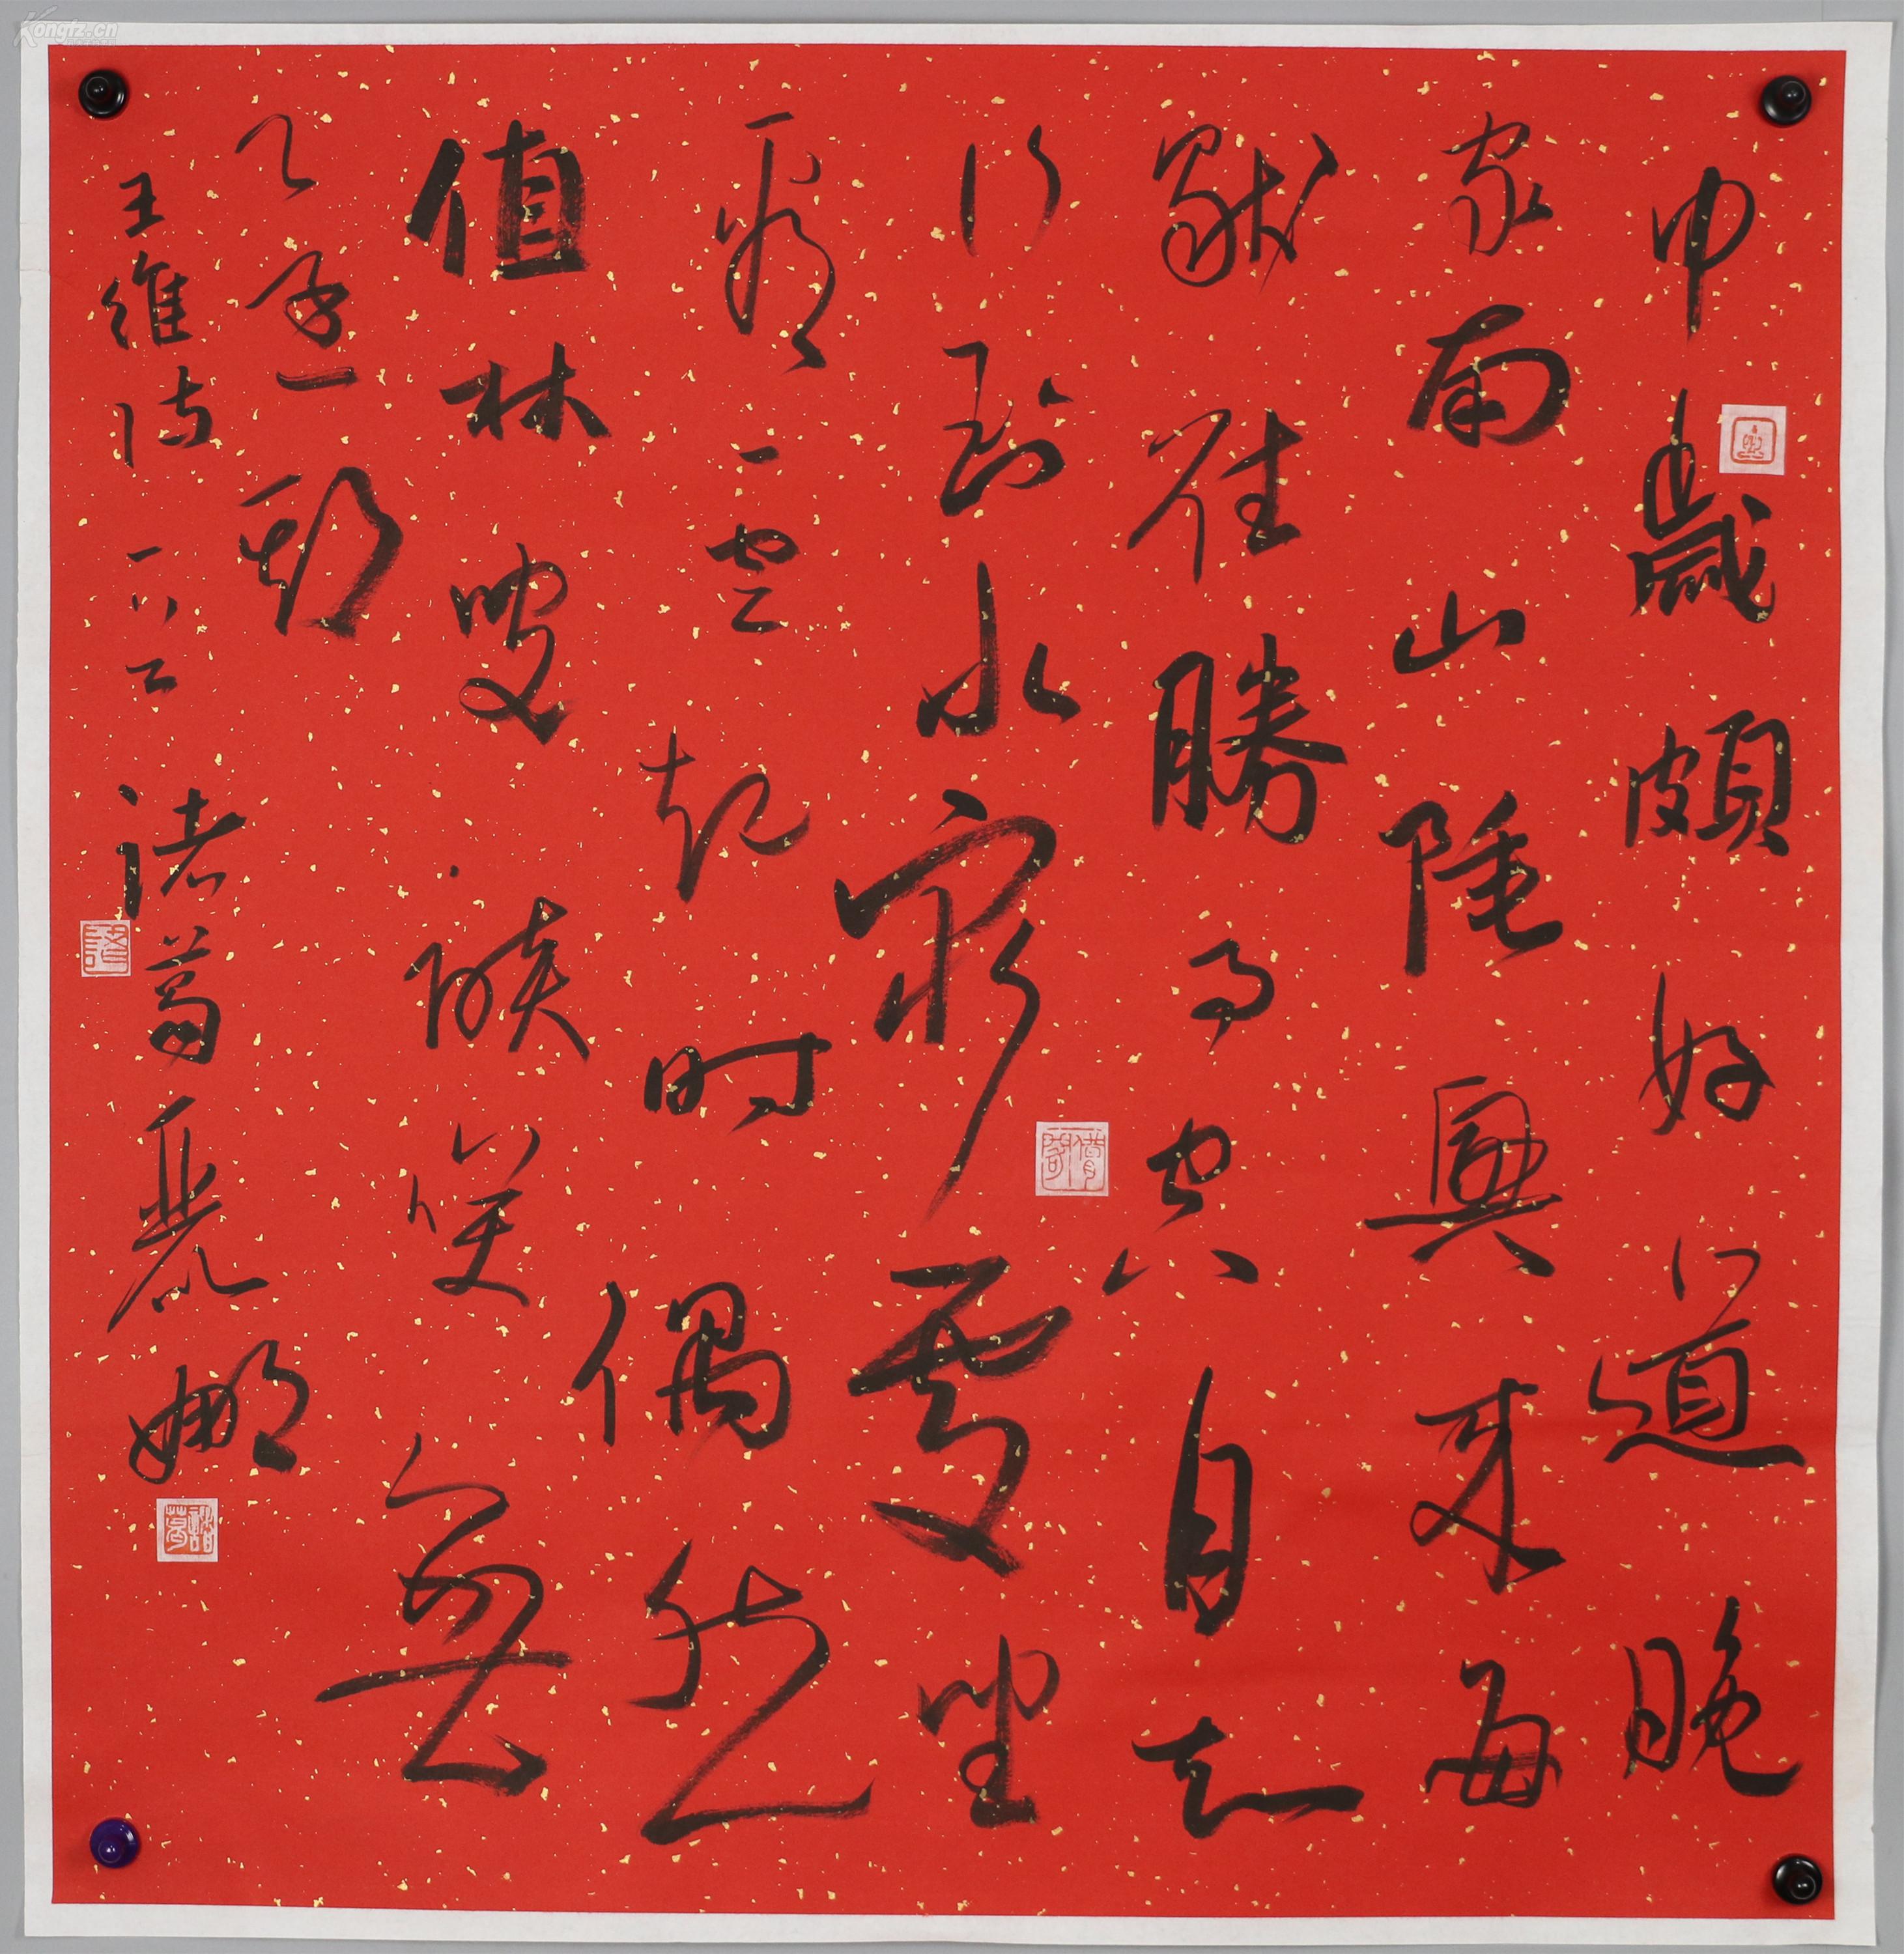 中歲頗好道晚
家南山陲興來每
獨往勝事空自知
行到水窮處坐
看雲起時偶然
值林叟談笑無
還期
王維詩一首 諸葛麗娜
諸葛
Kongfz.cn